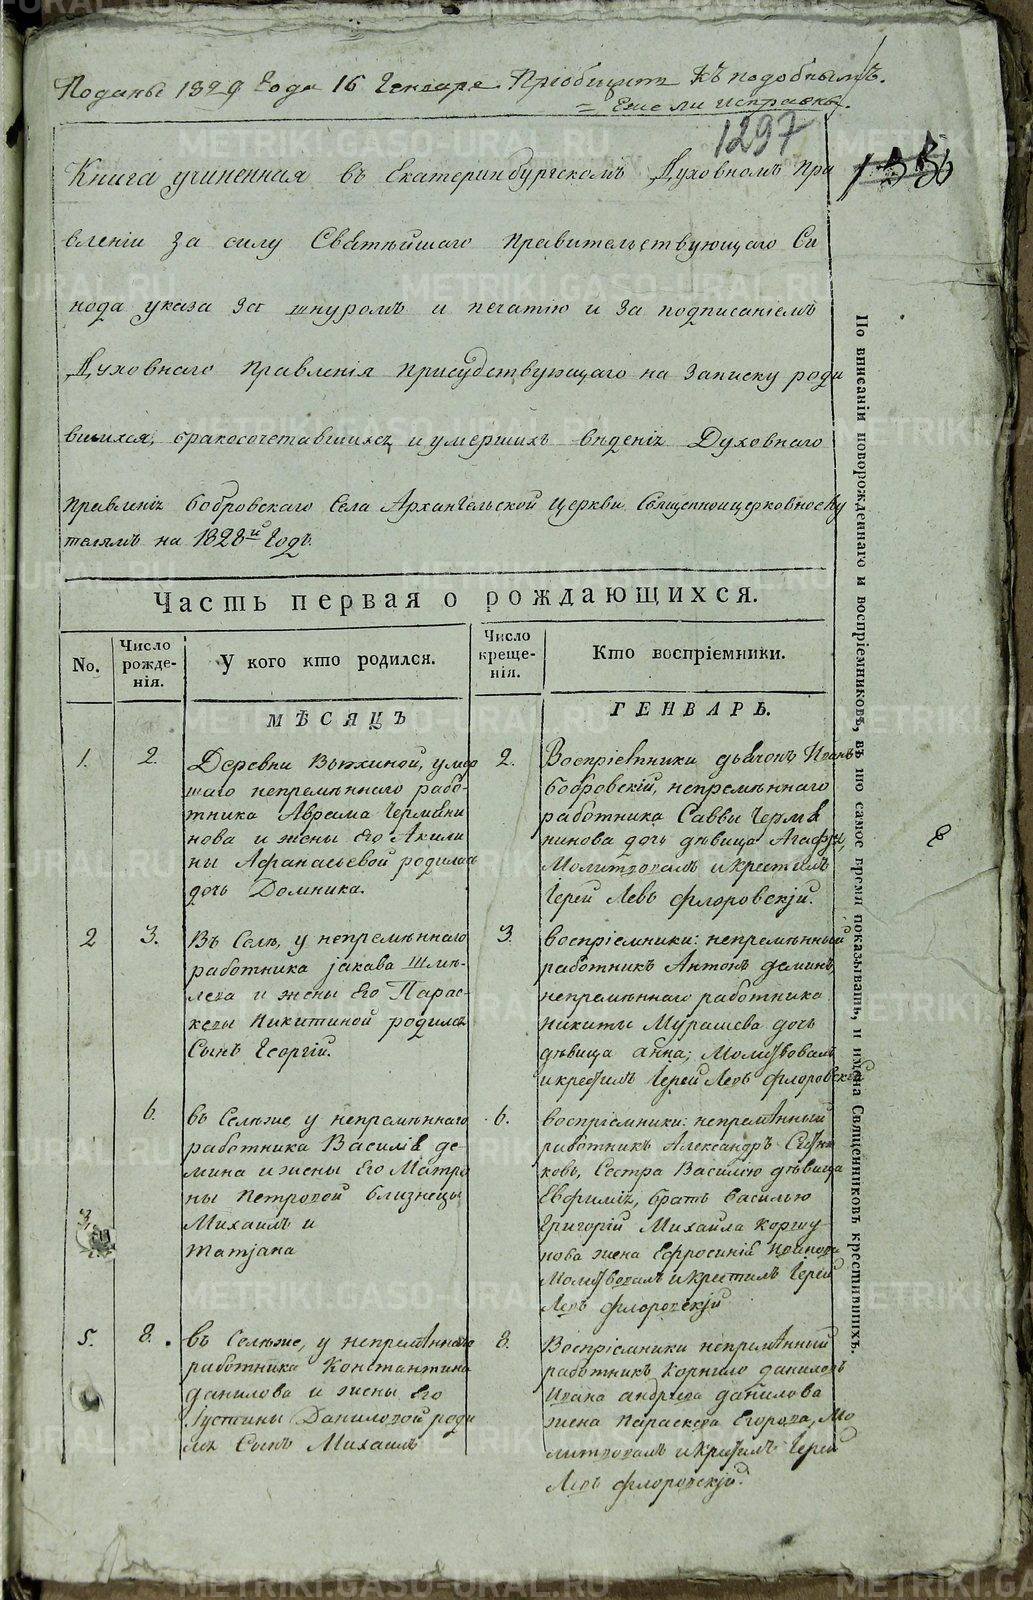 Поданы 1829 Года 16 Генваря Приобщит Къ подобнымъ.
= Ежели исправны.
1297
1336
Книга учиненная въ Екатеринбургскомъ Духовномъ Пра
вленіи За силу Святѣйшаго Правительствующаго Си
нода указа За шнуромъ и печатію и За подписаніемъ
Духовнаго Правленія Присудствующаго на Записку роди
вшихся, бракосочетавшихся и умершихъ вѣденія Духовнаго
Правленія Бобровскаго Села Архангельской Церкви Священноцерковнослу
телямъ на 1828й Годъ.
Часть первая о рождающихся.
No.
Число рожде- нія.
У кого кто родился.
Число креще- нія.
Кто воспріемники.
МѢСЯЦЪ
ГЕНВАРЬ.
1.
2.
Деревни Вьюхиной, умер
шаго непремѣннаго рабо-
тника Аврама Чермяни
нова и жены Его Акили
ны Афанасьевой родилась
дочь Домника.
2.
Воспріемники дьячонъ Иванъ
Бобровскій, непремѣннаго
работника Саввы Чермя
нинова дочь дѣвица Агафья,
Молитвовалъ и крестилъ
Іерей Левъ Флоровскій.
2
3.
Въ Селѣ, у непремѣннаго
работника Јакава Шмы-
лева и жены Его Парас-
кевы Никитиной родился
Сынъ Георгій.
3.
воспріемники: непремѣнный
работникъ Антонъ деминъ,
непремѣннаго работника
Никиты Мурашева дочь
дѣвица анна; Молитвовалъ
и крестилъ Іерей Левъ Флоровскій
3.
6.
въ Селѣ же у непремѣннаго
работника Василія де-
мина и жены Его Матро
ны Петровой близнецы
Михаилъ и
Татјана
6.
воспріемники: непремѣнный
работникъ Александръ
ковъ, Сестра Василію дѣвица
Евфимія, братъ Василью
Григорій Михайла Коршу
нова жена Ефросинія Иванова
Молитвовалъ и крестилъ Іерей
Левъ Флоровскій
5.
8.
въ Селѣ же, у непремѣннаго
работника Константина
данилова и жены Его
Іустины Даниловой роди
лся Сынъ Михаилъ
8.
Воспріемники непремѣнный
работникъ Корнило даниловъ
Ивана андреева данилова
жена Параскева Егорова, Мо
литвовалъ и крестилъ Іерей
Левъ Флоровскій.
По вписаніи новорожденнаго и воспріемниковъ, въ то самое время показывать, и имена Священниковъ крестившихъ.
METRIKI.GASO-URAL.RU